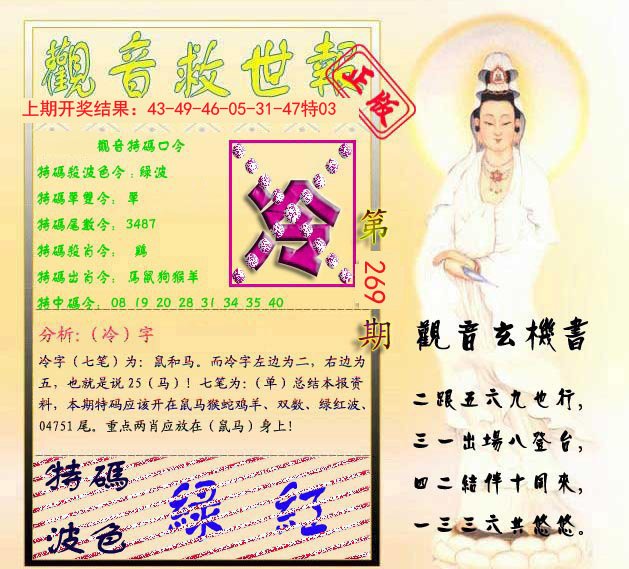 觀音救世報
正版
上期开奖结果：43-49-46-05-31-47特03
觀音特碼口令
特碼殺波色令：綠波
特碼單雙令： 單
特碼尾數令： 3487
特碼殺肖令： 鷄
特碼出肖令： 馬鼠狗猴羊
特中碼令： 08 19 20 28 31 34 35 40
冷
第269期
分析：（冷）字
冷字（七笔）为：鼠和马。而冷字左边为二，右边为
五，也就是说 25（马）！七笔为：（单）总结本报资
料，本期特码应该开在鼠马猴蛇鸡羊、双数、绿红波、
04751 尾。重点两肖应放在（鼠马）身上！
特碼
波色
綠 紅
觀音玄機書
二跟五六九也行，
三一出場八登台，
四二結伴十同來，
一三三六共悠悠。